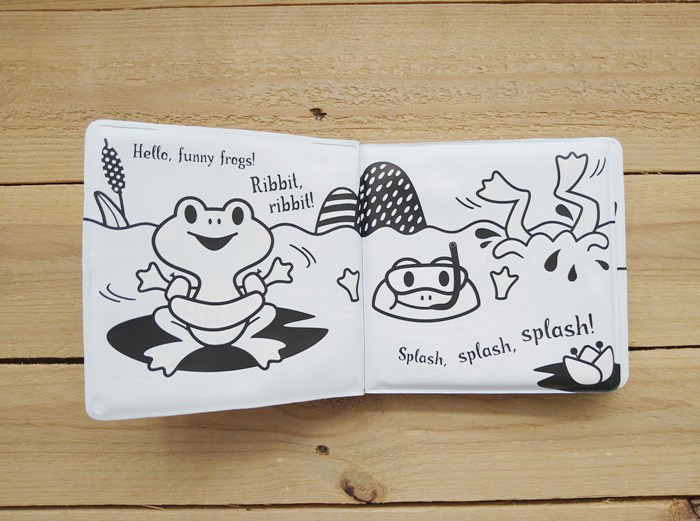 Hello, funny frogs!
Ribbit,
ribbit!
Splash, splash, splash!